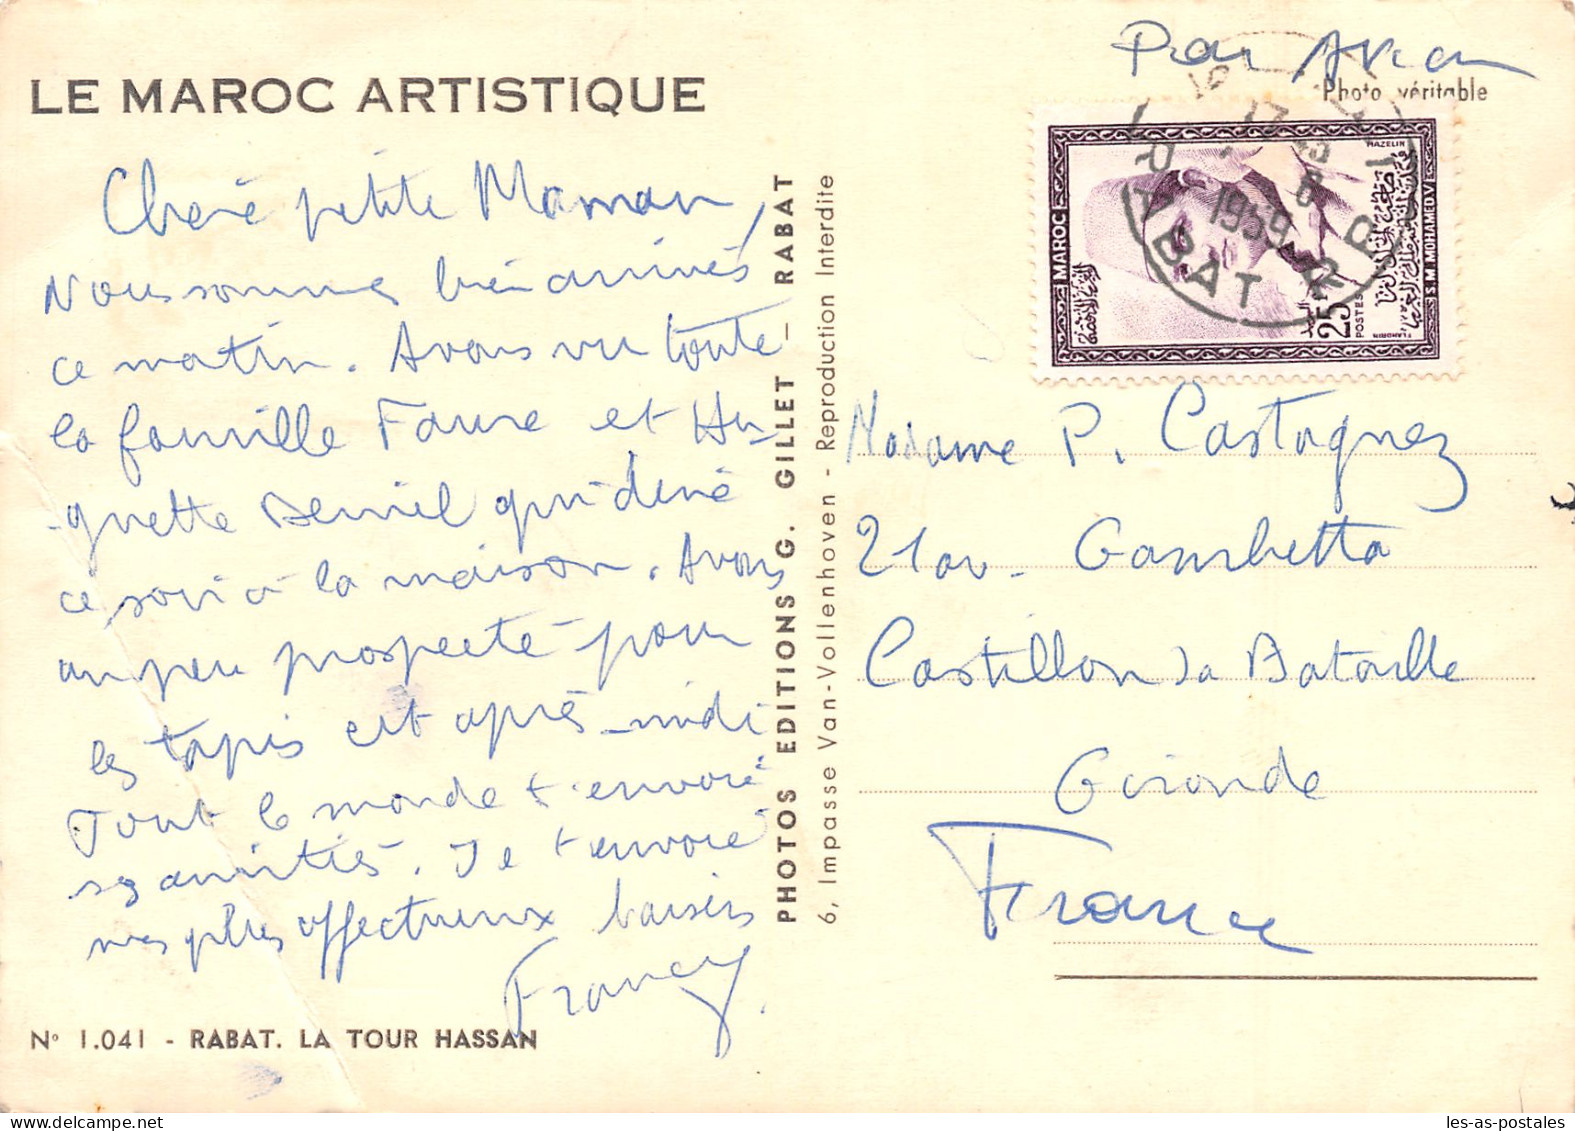 LE MAROC ARTISTIQUE
Chère petite Maman,
Nous sommes bien arrivés
ce matin. Avons vu toute
la famille Faure et Hu-
-guette qui dîne
ce soir à la maison. Avons
un peu prospecté pour
les tapis cet après-midi
Tout le monde t'envoie
ses amitiés. Je t'envoie
mes plus affectueux baisers
Francy.
N° 1.041 - RABAT. LA TOUR HASSAN
PHOTOS EDITIONS G. GILLET - RABAT
6, Impasse Van-Vollenhoven - Reproduction Interdite
Par Avion
Photo véritable
MAROC
25
POSTES
S.M. MOHAMED V
MAZELIN
RABAT R.P.
17
6
1959
Madame P. Castagnez
21 av. Gambetta
Castillon la Bataille
Gironde
France
les-as-postales